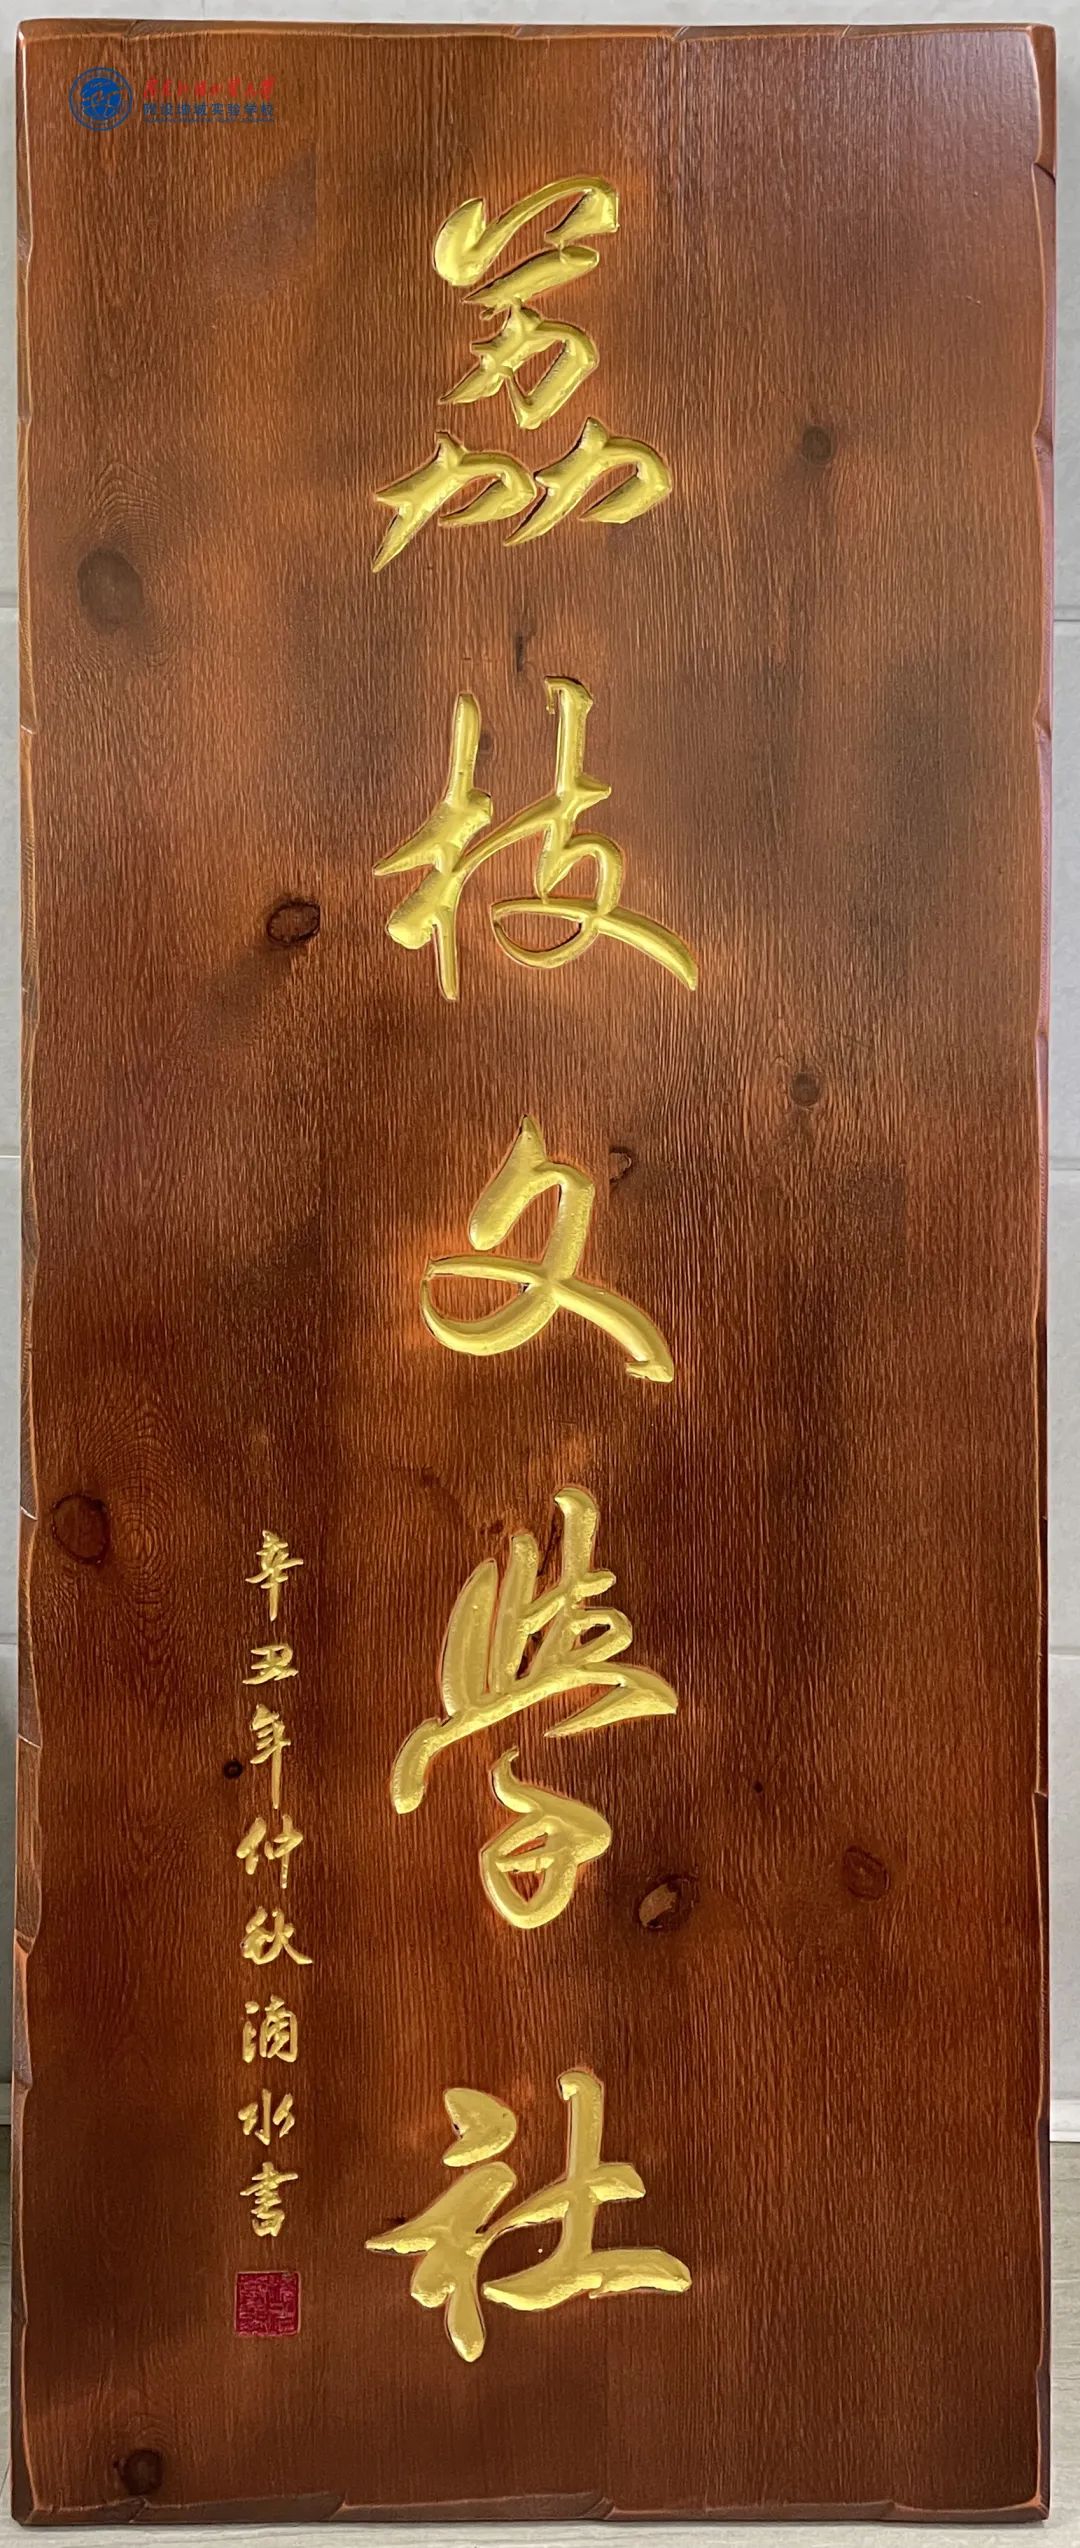 荔枝文學社
辛丑年仲秋滴水書